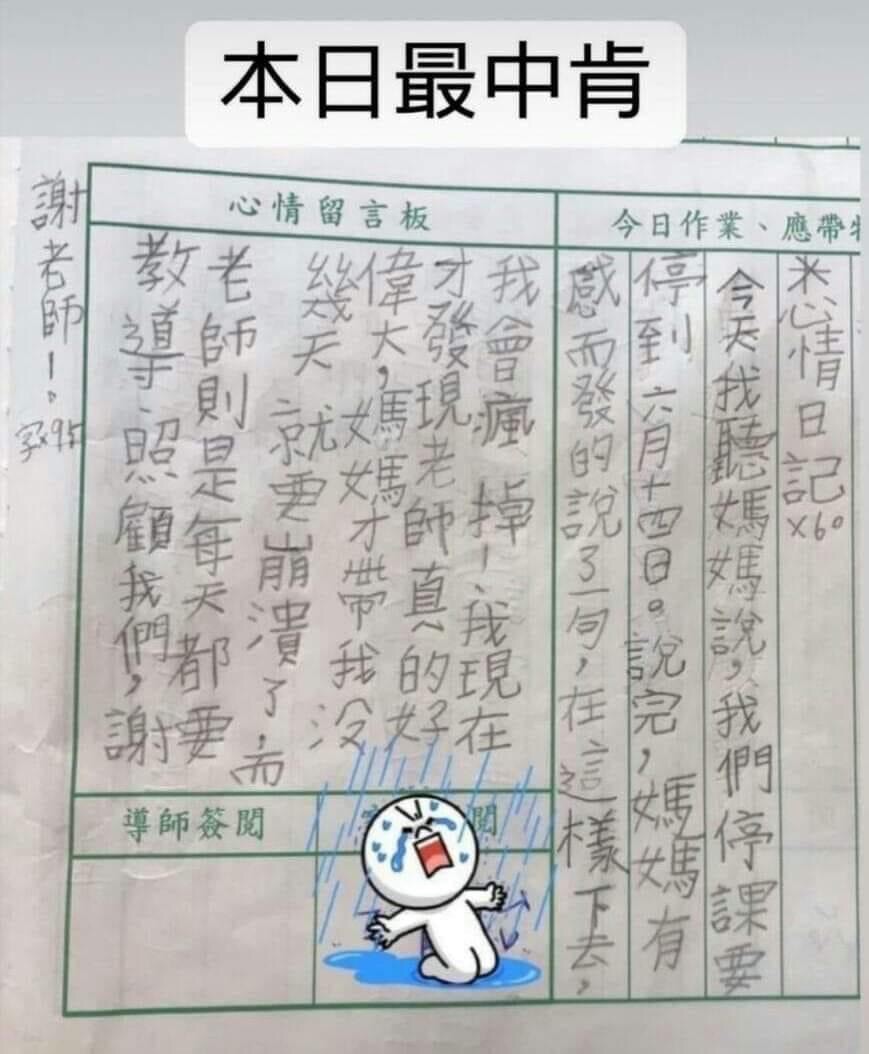 本日最中肯
今日作業、應帶
※心情日記
x60
今天我聽媽媽說，我們停課要
停到六月十四日。說完，媽媽有
感而發的說了一句，在這樣下去，
心情留言板
我會瘋掉！、我現在
才發現老師真的好
偉大，媽媽才帶我沒
幾天就要崩潰了，而
老師則是每天都要
教導、照顧我們，謝
謝老師！。
字x95
導師簽閱
閱